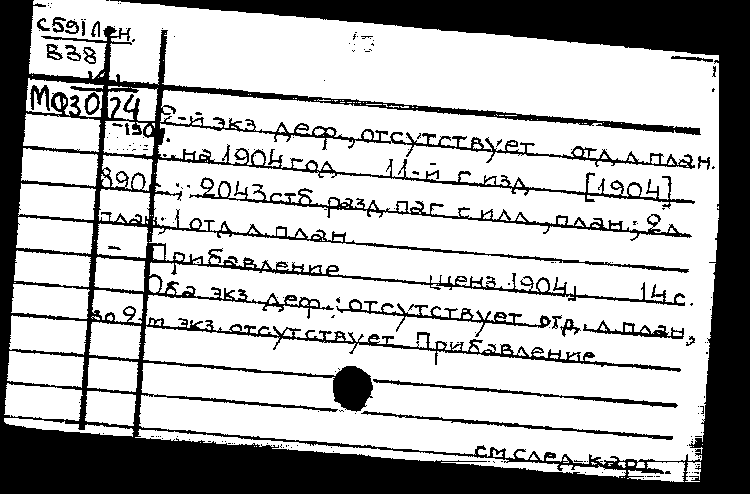 С591 Лен.
В38
МФ30174 2-й экз. деф., отсутствует отд. л. план.
-190
... на 1904 год 11-й г. изд. [1904]
890с.; 2043 стб. разд. паг. с илл., план.; 2 л.
план; 1 отд. л. план.
- Прибавление [ценз. 1904] 14 с.
Оба экз. деф.: отсутствует отд. л. план,
во 2-м экз. отсутствует Прибавление.
см. след. карт.